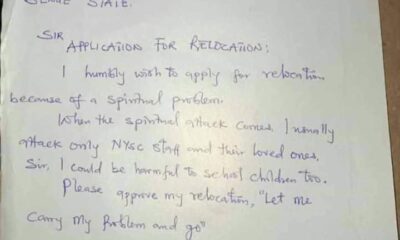 BENUE STATE.
SIR
APPLICATION FOR RELOCATION:
I humbly wish to apply for relocation
because of a spiritual problem.
When the spiritual attack comes. I usually
attack only NYSC staff and their loved ones.
Sir, I could be harmful to school children too.
Please approve my relocation, "Let me
Carry My Problem and go"